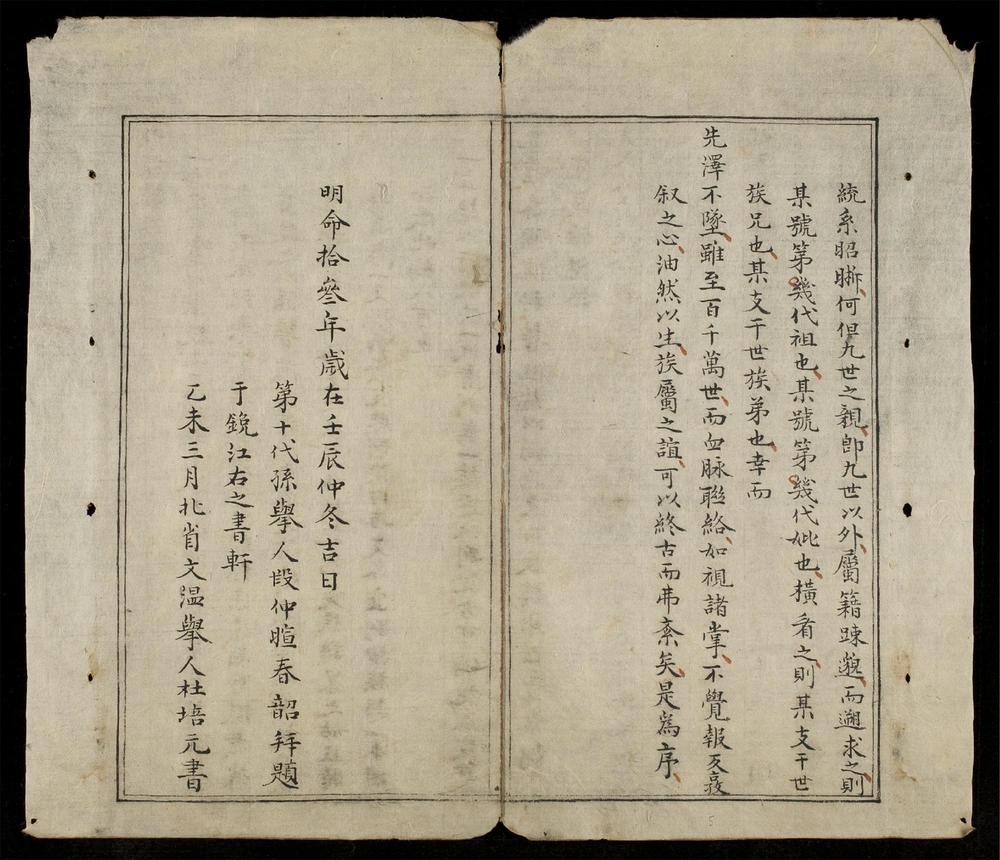 統系昭晰何但九世之親即九世以外屬籍踈邈而遡求之則
某號第幾代祖也某號第幾代妣也橫看之則某支干世
族兄也某支干世族弟也幸而
先澤不墜雖至百千萬世而血脉聯絡如視諸掌不覺報反哀
叙之心油然以生族屬之誼可以終古而弗紊矣是為序
明命拾叄年歲在壬辰仲冬吉日
第十代孫舉人段仲暄春韶拜題
于銳江右之書軒
乙未三月北省文温舉人杜培元書